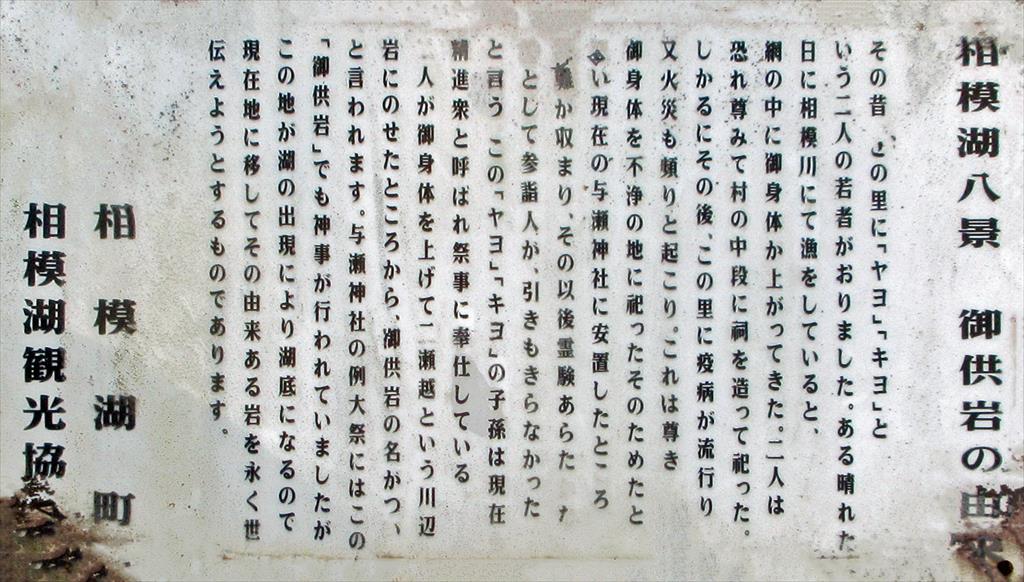 相模湖八景 御供岩の由来
その昔 この里に「ヤヨ」「キヨ」と
いう二人の若者がおりました。ある晴れた
日に相模川にて漁をしていると、
網の中に御身体か上がってきた。二人は
恐れ尊みて村の中段に祠を造って祀った。
しかるにその後、この里に疫病が流行り
又火災も頻りと起こり。これは尊き
御身体を不浄の地に祀ったそのためたと
い現在の与瀬神社に安置したところ
難か収まり、その以後霊験あらた
として参詣人が、引きもきらなかった
と言う この「ヤヨ」「キヨ」の子孫は現在
精進衆と呼ばれ祭事に奉仕している
二人が御身体を上げて二瀬越という川辺
岩にのせたところから、御供岩の名がつ
と言われます。与瀬神社の例大祭にはこの
「御供岩」でも神事が行われていましたが
この地が湖の出現により湖底になるので
現在地に移してその由来ある岩を永く世
伝えようとするものであります。
相模湖町
相模湖観光協会